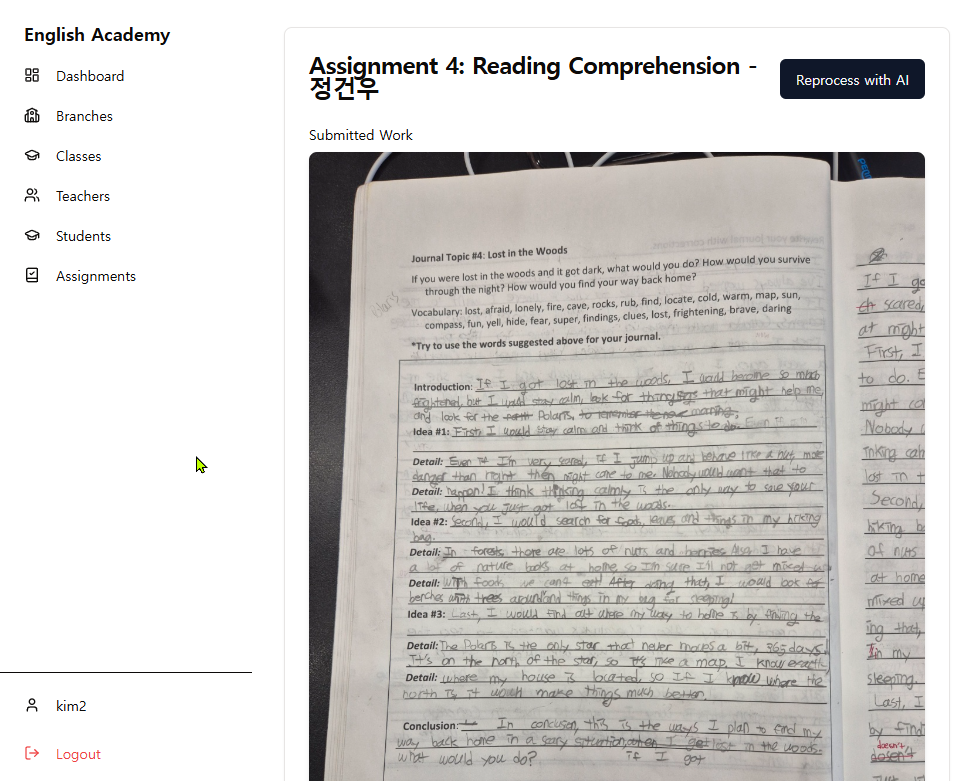 English Academy
Dashboard
Branches
Classes
Teachers
Students
Assignments
kim2
Logout
Assignment 4: Reading Comprehension -
정건우
Reprocess with AI
Submitted Work
Journal Topic #4: Lost in the Woods
If you were lost in the woods and it got dark, what would you do? How would you survive
through the night? How would you find your way back home?
Vocabulary: lost, afraid, lonely, fire, cave, rocks, rub, find, locate, cold, warm, map, sun,
compass, fun, yell, hide, fear, super, findings, clues, lost, frightening, brave, daring
*Try to use the words suggested above for your journal.
Introduction: If I got lost in the woods, I would become so much
frightened, but I would stay calm, look for things that might help me,
and look for the north Polaris, to remember the morning,
Idea #1: First, I would stay calm and think of things to do. Even
Detail: Even if I'm very scared, if I jump up and behave like a nut, more
danger than right then might come to me. Nobody would want that to
Detail: happen! I think thinking calmly is the only way to save your
life, when you just got lost in the woods.
Idea #2: Second, I would search for food, leaves, and things in my hiking
bag.
Detail: In forests, there are lots of nuts and berries. Also I have
a lot of nature books at home, so I'm sure I'll not get mixed up
Detail: With food, we can eat After doing that, I would look for
benches with trees around and things in my bag for sleeping!
Idea #3: Last, I would find out where my way to home is by finding the
Detail: The Polaris is the only star that never moves a bit, 365 days!
It's on the north of the star, so it's like a map. I know exactly
Detail: where my house is located, so If I know where the
north is, it would make things much better.
Conclusion: In conclusion, this is the ways I plan to find my
way back home in a scary situation, when I get lost in the woods.
What would you do? if I got
If I go
scared,
at night
First, I
to do. E
might co
Nobody
inking cal
lost in t
Second,
hiking b
of nuts
at home
mixed up
ing that,
in my
sleeping.
Last, I
by find
doesn't
dosen't